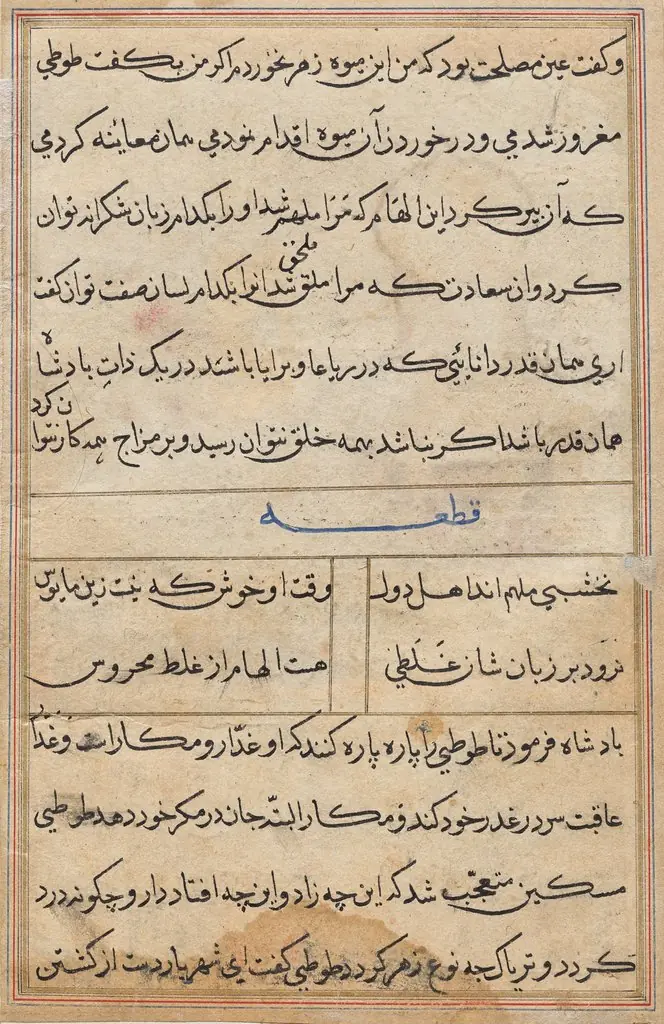 و كفت عين مصلحت بود كه من اين ميوه زهر نخوردم اكر من بكفت طوطي
مغرور شدمي و در خوردن آن ميوه اقدام نمودمي همان معاينه كردمي
كه آن پير كرد اين الهام كه مرا ملهم شد او را بكدام زبان شكرانه توان
ملحق
كرد و ان سعادت كه مرا ملق شد انوا بكدام لسان صفت توان كفت
اري همان قدر دانائي كه در رعايا و برايا باشند در يك ذات بادشاه
همان قدر باشد اكر نباشد بهمه خلق نتوان رسيد و بر مزاج همه كار نتوان كرد
قطعه
نخشبي ملهم اند اهل دول وقت او خوش كه نيت زين مايوس
نرود بر زبان شان غلطي هست الهام از غلط محروس
بادشاه فرمود تا طوطي را پاره پاره كنند كه او غدّار و مكار است و غدّار
عاقبت سر در غدر خود كند و مكار البتّه جان در مكر خود دهد طوطي
مسكين متعجّب شد كه اين چه زاد و اين چه افتاد دارو چكونه درد
كردد و ترياك چه نوع زهر كردد طوطي كفت اي شهريار دست از كشتن